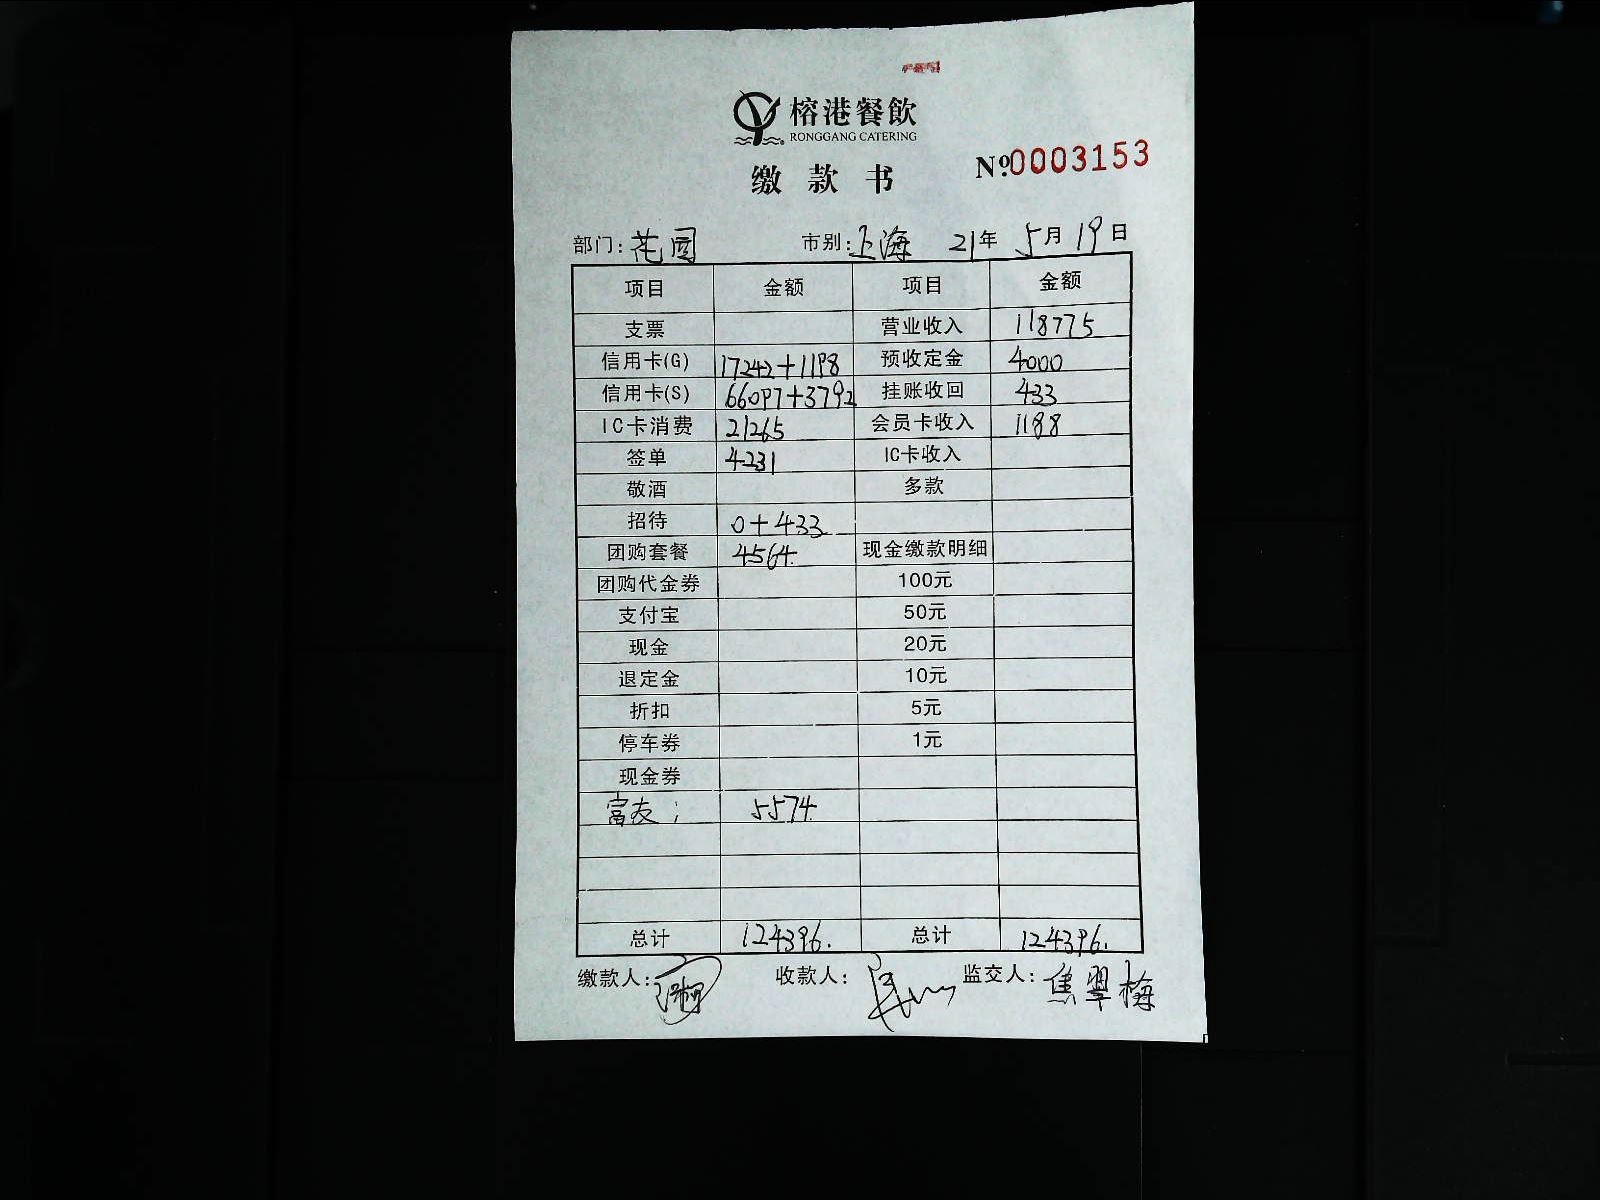 榕港餐飲
RONGGANG CATERING
缴款书
№0003153
部门:花园 市别:上海 21年 5月19日
项目 金额 项目 金额
支票 营业收入 118775
信用卡(G) 17242+1198 预收定金 4000
信用卡(S) 66097+3792 挂账收回 433
IC卡消费 21265 会员卡收入 1188
签单 4231 IC卡收入
敬酒 多款
招待 0+433
团购套餐 4564. 现金缴款明细
团购代金券 100元
支付宝 50元
现金 20元
退定金 10元
折扣 5元
停车券 1元
现金券
富友; 5574.
总计 124396. 总计 124396.
缴款人: 收款人: 监交人:焦翠梅